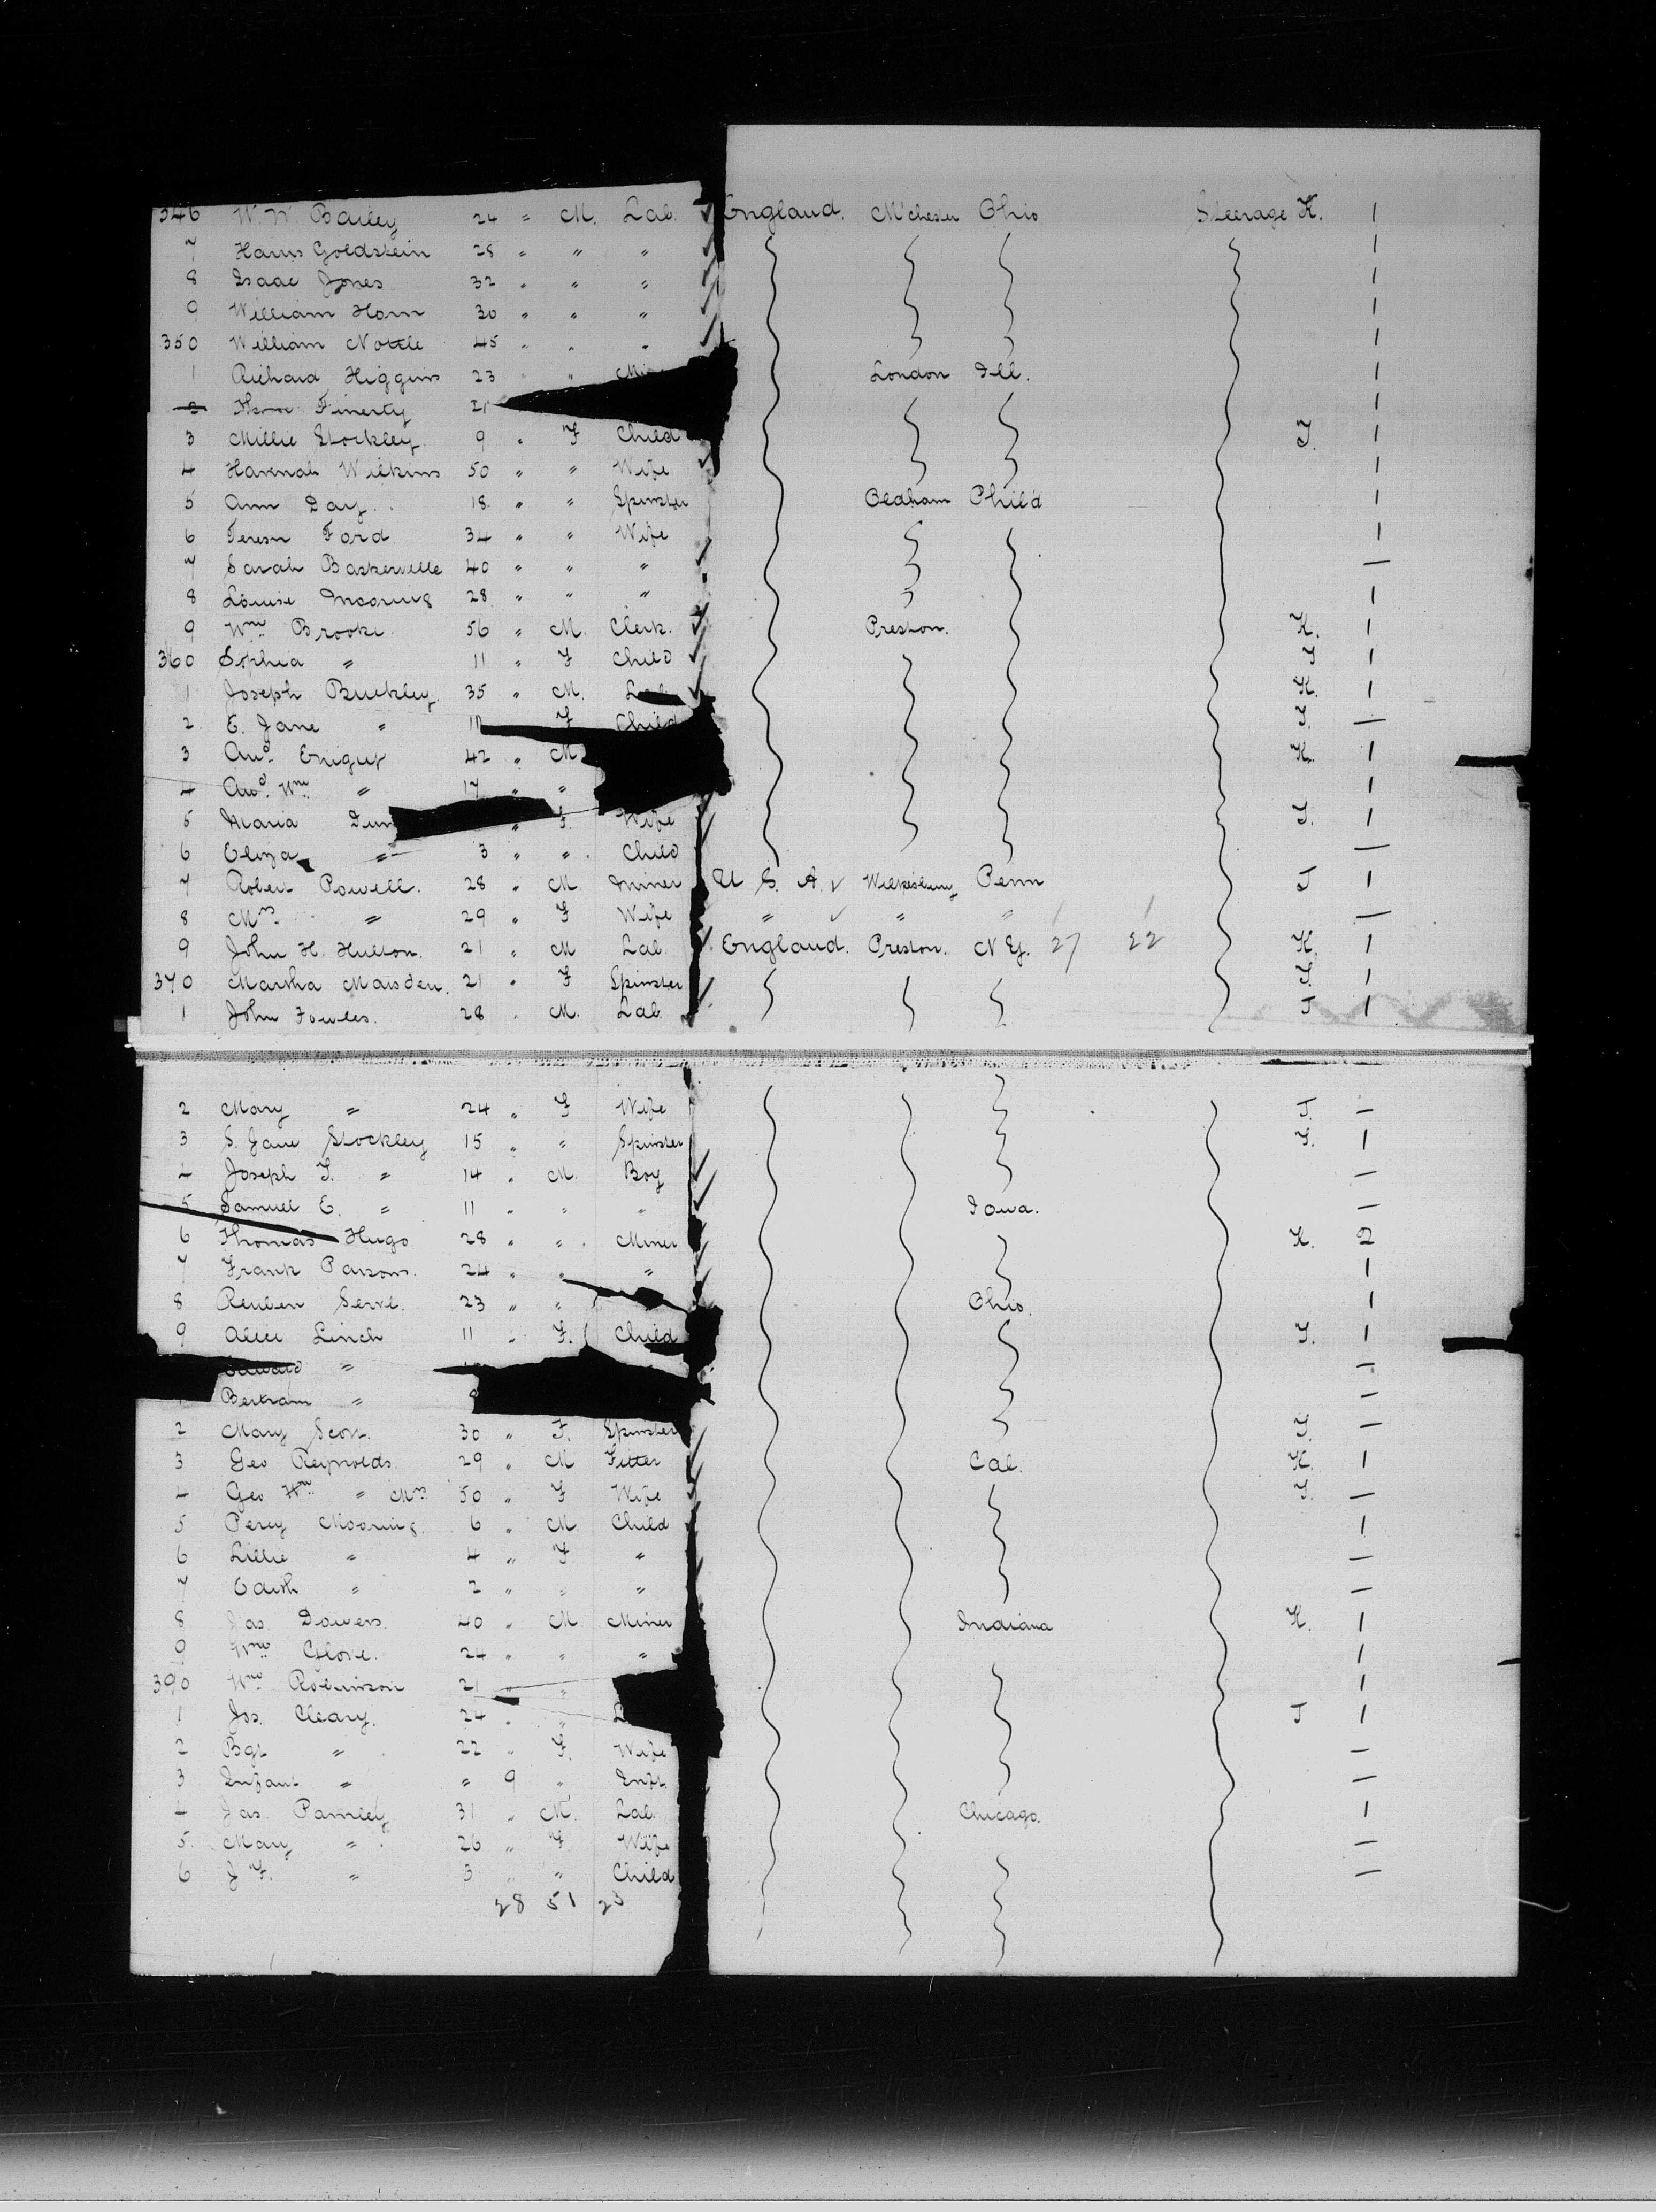 346 W. W. Bailey 24 " M. Lab. ✓ England. M'chester Ohio Steerage K. 1
7 Harris Goldstein 28 " " " ✓ 1
8 Isaac Jones 32 " " " ✓ 1
9 William Horn 30 " " " ✓ 1
350 William Nottle 45 " " " ✓ 1
1 Richard Higgins 23 " " London Ill. 1
2 Finerty 21 1
3 Millie Stockley 9 " F Child I. 1
4 Hannah Wilkins 50 " " Wife ✓ 1
5 Ann Day 18 " " Spinster Oldham Phil'd 1
6 Teresa Ford 34 " " Wife 1
7 Sarah Baskerville 40 " " " —
8 Louise Mooring 28 " " " 1
9 Wm Brooke 56 " M. Clerk. ✓ Preston. K. 1
360 Sophia " 11 " F Child ✓ I 1
1 Joseph Buckley 35 " M. Lab ✓ K. 1
2 E. Jane " 11 F Child I. —
3 42 " M K. 1
4 Wm " 17 " " 1
5 Maria " F. Wife ✓ I. 1
6 Eliza " 3 " " Child —
7 Robert Powell. 28 " M Miner U. S. A. ✓ Penn J 1
8 Mrs " 29 " F Wife " ✓ " " —
9 John H. Hulton. 21 " M Lab. ✓ England. Preston. N Y. 27 22 K. 1
370 Martha Marsden. 21 " F Spinster ✓ I. 1
1 John Fowles. 28 " M. Lab. J 1
2 Mary " 24 " F Wife J. —
3 S. Jane Stockley 15 " " Spinster I. 1
4 Joseph T. " 14 " M. Boy ✓ —
5 Samuel E. " 11 " " " ✓ Iowa. —
6 Thomas Hugo 28 " " Miner ✓ K. 2
7 Frank Parsons. 24 " " " ✓ 1
8 Reuben 23 " " Ohio. 1
9 Alice Linch 11 " F. Child I. 1
Edward " —
Bertram " —
2 Mary Scott. 30 " F. Spinster I. —
3 Geo Reynolds. 29 " M Fitter ✓ Cal. K. 1
4 Geo Wm " Mrs 50 " F Wife ✓ I. —
5 Percy Mooring. 6 " M. Child 1
6 Lillie " 4 " F " —
7 Edith " 2 " " " —
8 Jas. Dowers. 40 " M. Miner Indiana K. 1
9 Wm Glove. 24 " " " 1
390 Wm Robinson 21 " " 1
1 Jos. Cleary. 24 " " J 1
2 Bgt " 22 " F. Wife —
3 Infant " " 9 " Inft. —
4 Jas. Parnley 31 " M. Lab. Chicago. 1
5 Mary " 26 " F Wife —
6 J F. " 3 " " Child —
28 51 23